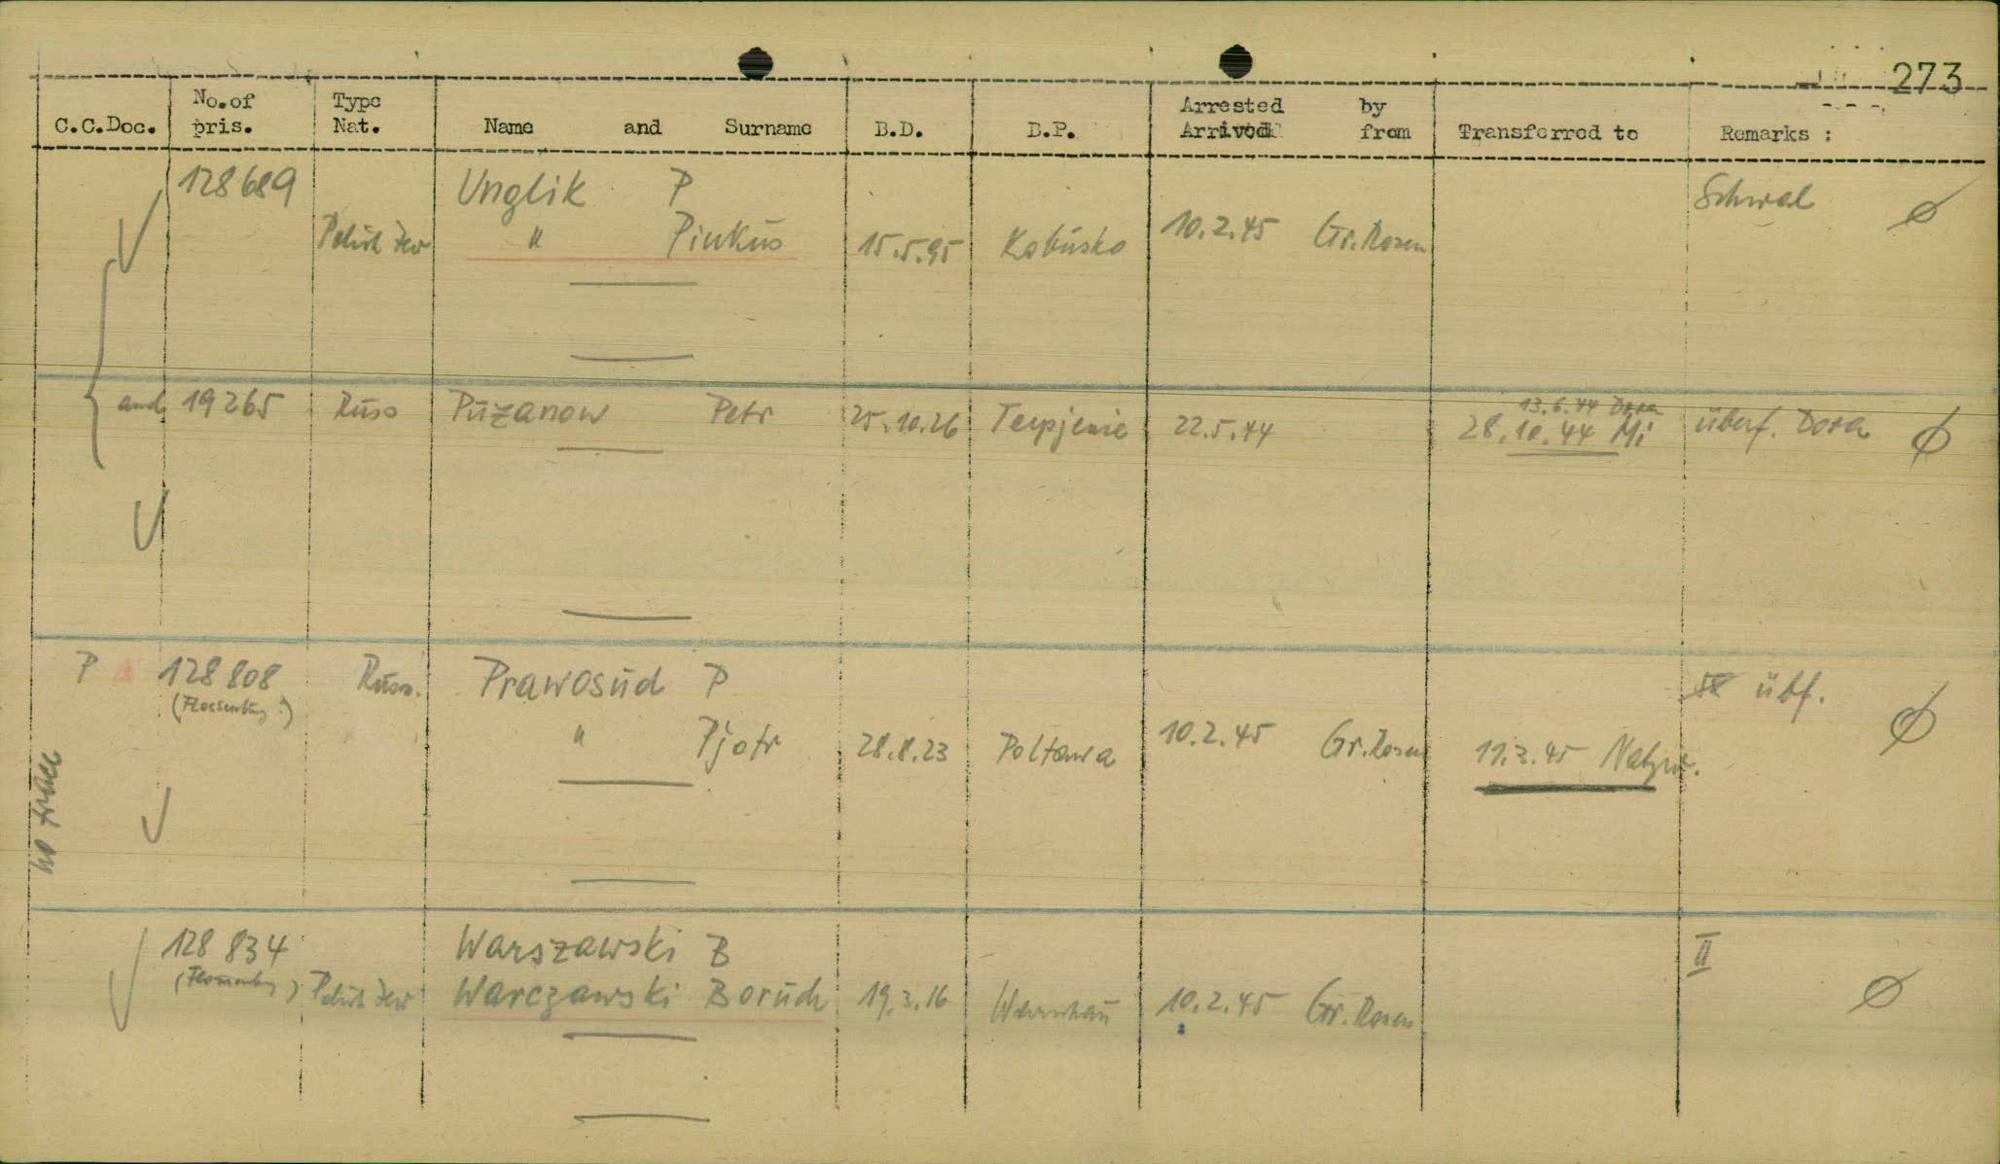 273
C.C.Doc. No.of pris. Type Nat. Name and Surname B.D. B.P. Arrested by Arrived from Transferred to Remarks :
128689 Unglik P Schwal
Polish Jew " Pinkus 15.5.95 Kobusko 10.2.45 Gr.Rosen
13.6.44 Dora
and 19265 Russ Puzanow Petr 25.10.26 Terpjenie 22.5.44 28.10.44 Mi überf. Dora
P 128808 Russ. Prawosud P übf.
(Flossenbürg ?) " Pjotr 28.8.23 Poltawa 10.2.45 Gr.Rosen 11.3.45 Natzw.
no trace
128834 Warszawski B II
(Flossenbürg) Polish Jew Warczawski Boruch 19.3.16 Warschau 10.2.45 Gr.Rosen